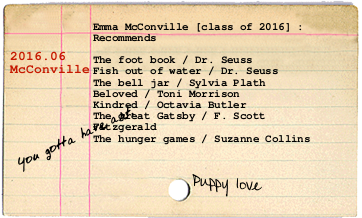 Emma McConville [class of 2016] :
Recommends
2016.06
McConville
The foot book / Dr. Seuss
Fish out of water / Dr. Seuss
The bell jar / Sylvia Plath
Beloved / Toni Morrison
Kindred / Octavia Butler
The Great Gatsby / F. Scott
Fitzgerald
The hunger games / Suzanne Collins
you gotta have art
Puppy love